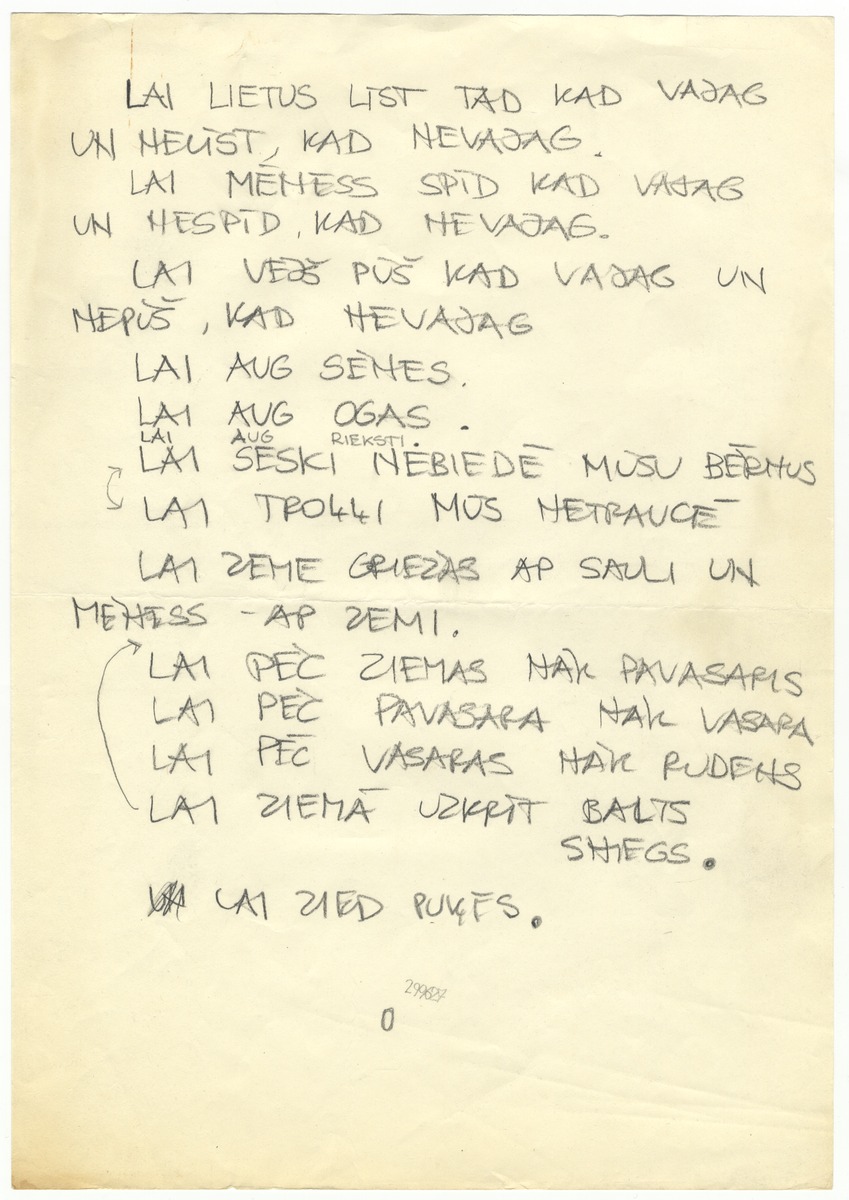 LAI LIETUS LĪST TAD KAD VAJAG
UN NELĪST, KAD NEVAJAG.
LAI MĒNESS SPĪD KAD VAJAG
UN NESPĪD, KAD NEVAJAG.
LAI VĒJŠ PŪŠ KAD VAJAG UN
NEPŪŠ, KAD NEVAJAG
LAI AUG SĒNES.
LAI AUG OGAS.
LAI AUG RIEKSTI.
LAI SESKI NEBIEDĒ MŪSU BĒRNUS
LAI TROĻĻI MŪS NETRAUCĒ
LAI ZEME GRIEŽAS AP SAULI UN
MĒNESS - AP ZEMI.
LAI PĒC ZIEMAS NĀK PAVASARIS
LAI PĒC PAVASARA NĀK VASARA
LAI PĒC VASARAS NĀK RUDENS
LAI ZIEMĀ UZKRĪT BALTS
SNIEGS.
LAI ZIED PUĶES.
299627
0